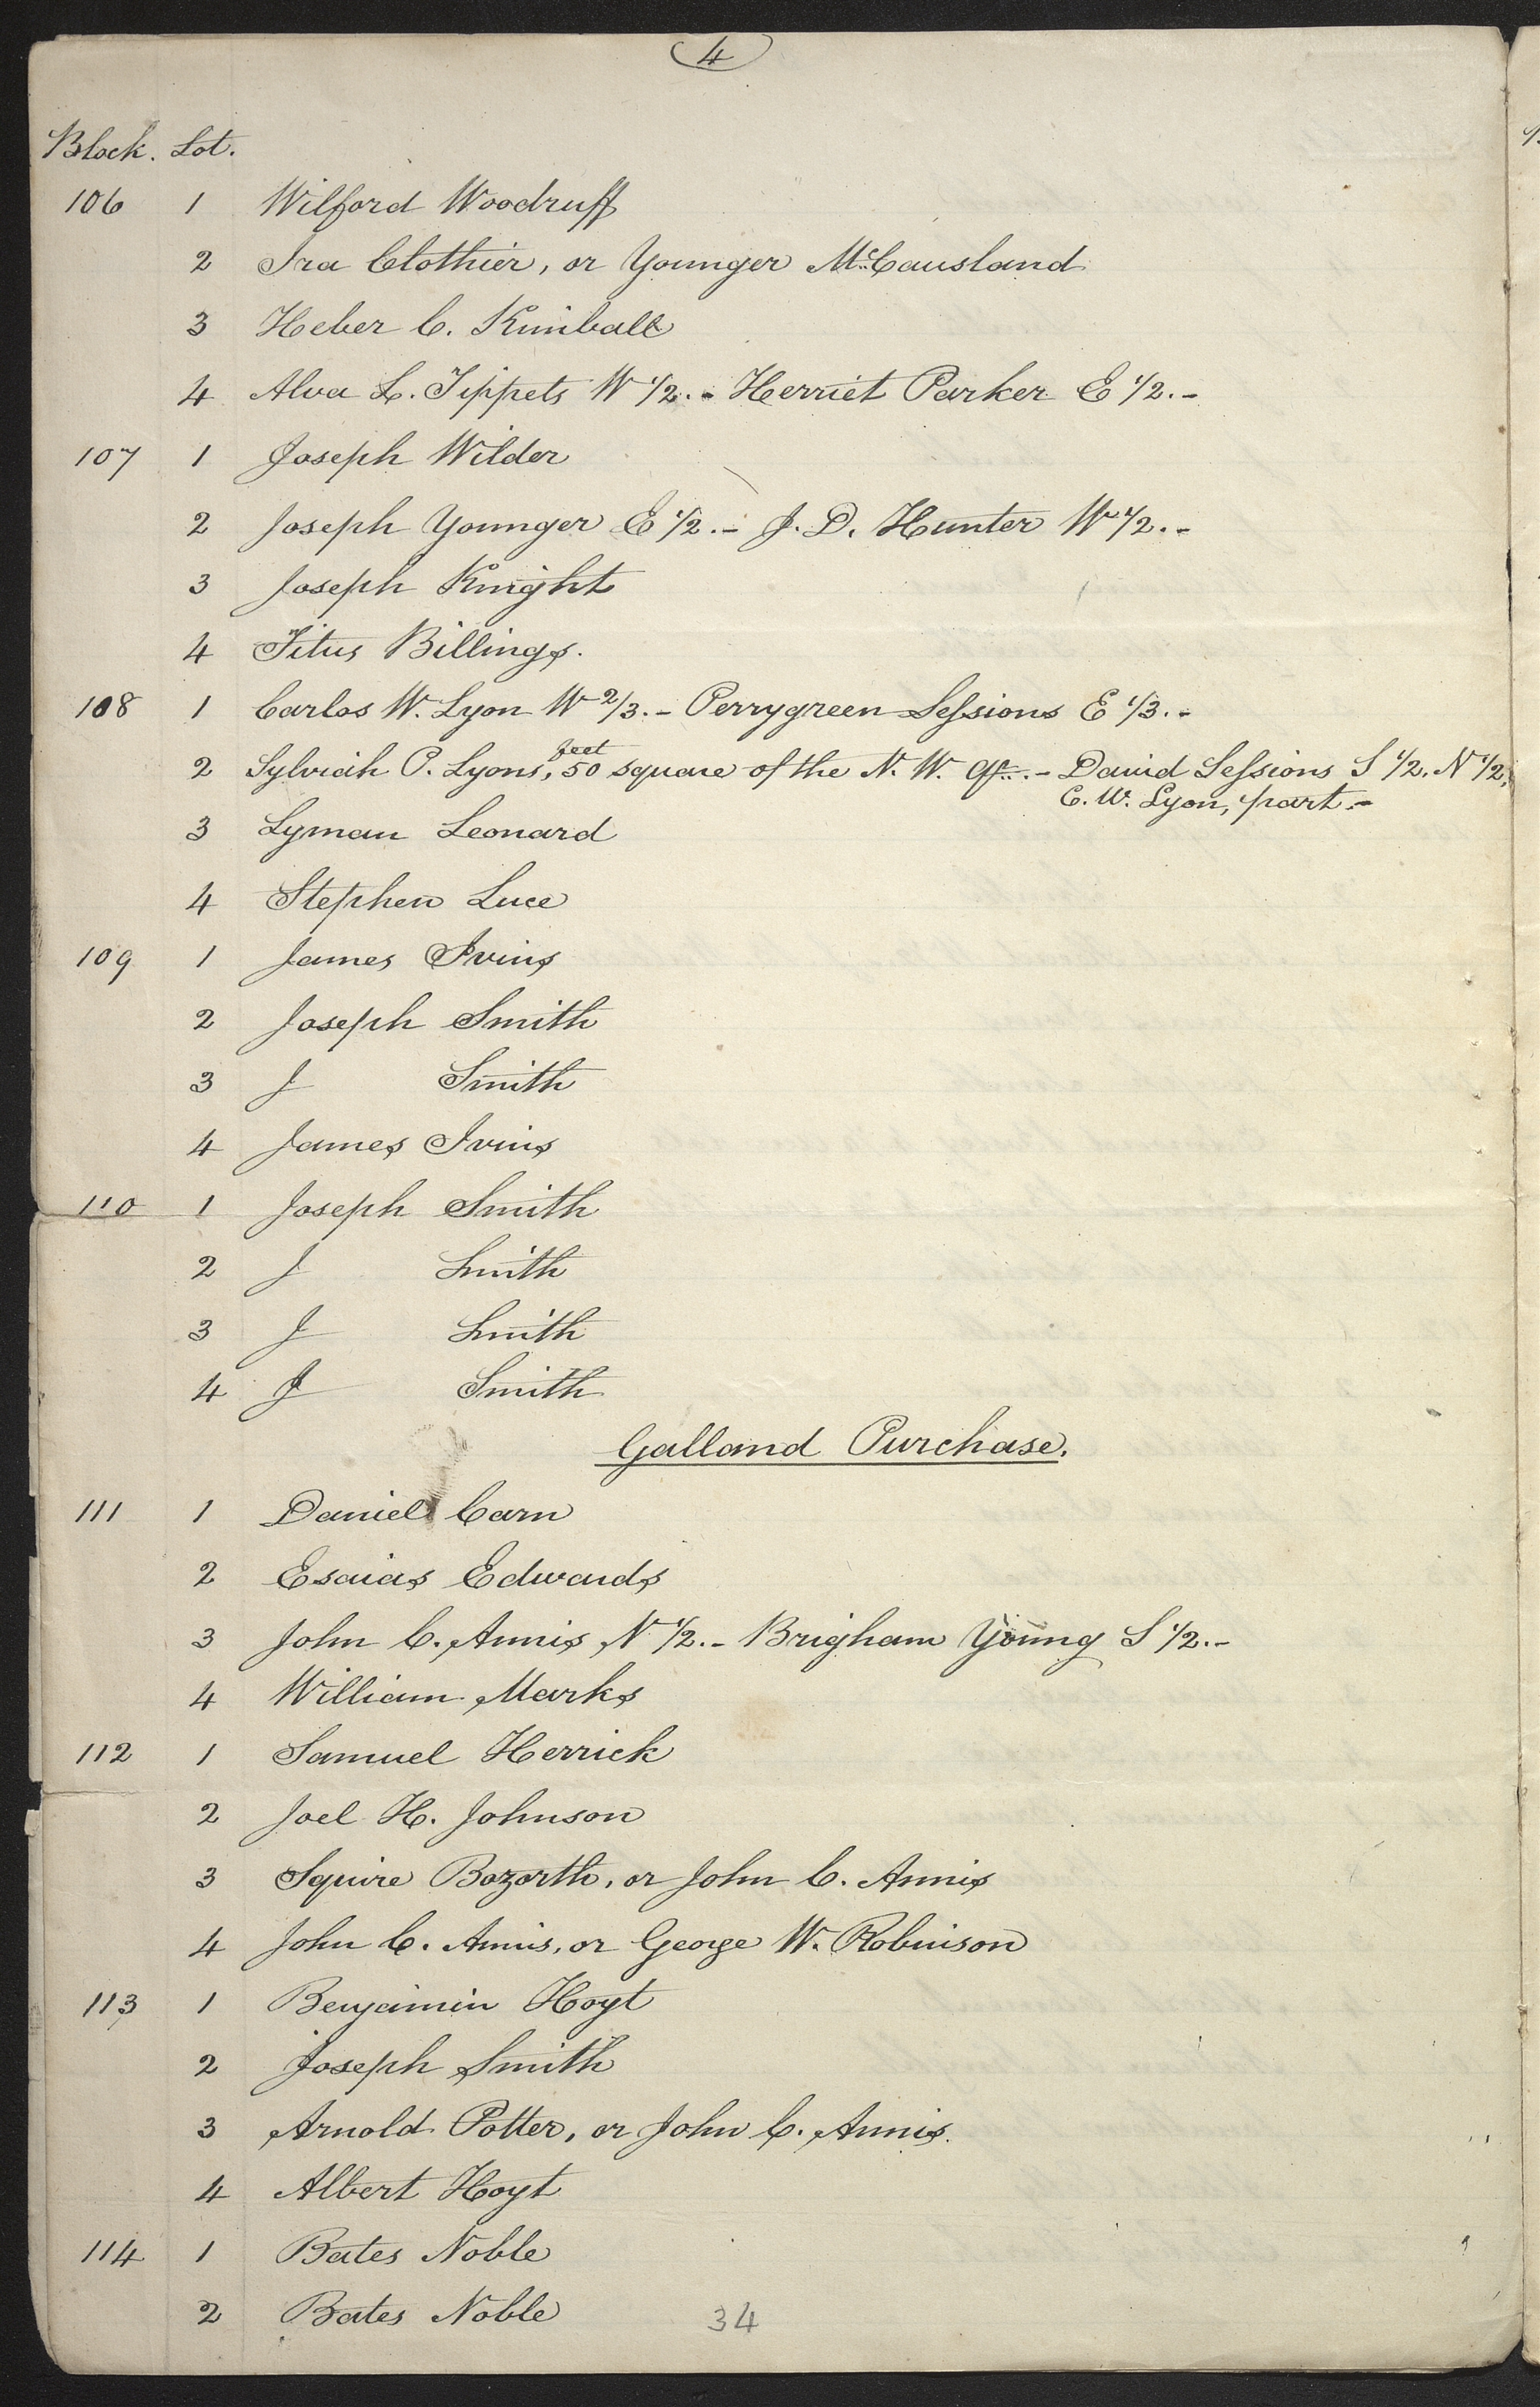 4
Block. Lot.
106 1 Wilford Woodruff
2 Ira Clothier, or Younger McCausland
3 Heber C. Kimball
4 Alva L. Tippets W 1/2. - Herriet Parker E 1/2. -
107 1 Joseph Wilder
2 Joseph Younger E 1/2. - J. D. Hunter W 1/2. -
3 Joseph Knight
4 Titus Billings.
108 1 Carlos W. Lyon W 2/3. - Perrygreen Sessions E 1/3. -
feet
2 Sylviah P. Lyons, 50 square of the N. W. qr. - David Sessions S 1/2. N 1/2,
C. W. Lyon, part. -
3 Lyman Leonard
4 Stephen Luce
109 1 James Ivins
2 Joseph Smith
3 J Smith
4 James Ivins
110 1 Joseph Smith
2 J Smith
3 J Smith
4 J Smith
Galland Purchase.
111 1 Daniel Carn
2 Esaias Edwards
3 John C. Annis N 1/2. - Brigham Young S 1/2. -
4 William Marks
112 1 Samuel Herrick
2 Joel H. Johnson
3 Squire Bozorth, or John C. Annis
4 John C. Annis, or George W. Robinson
113 1 Benjamin Hoyt
2 Joseph Smith
3 Arnold Potter, or John C. Annis.
4 Albert Hoyt
114 1 Bates Noble
2 Bates Noble
34